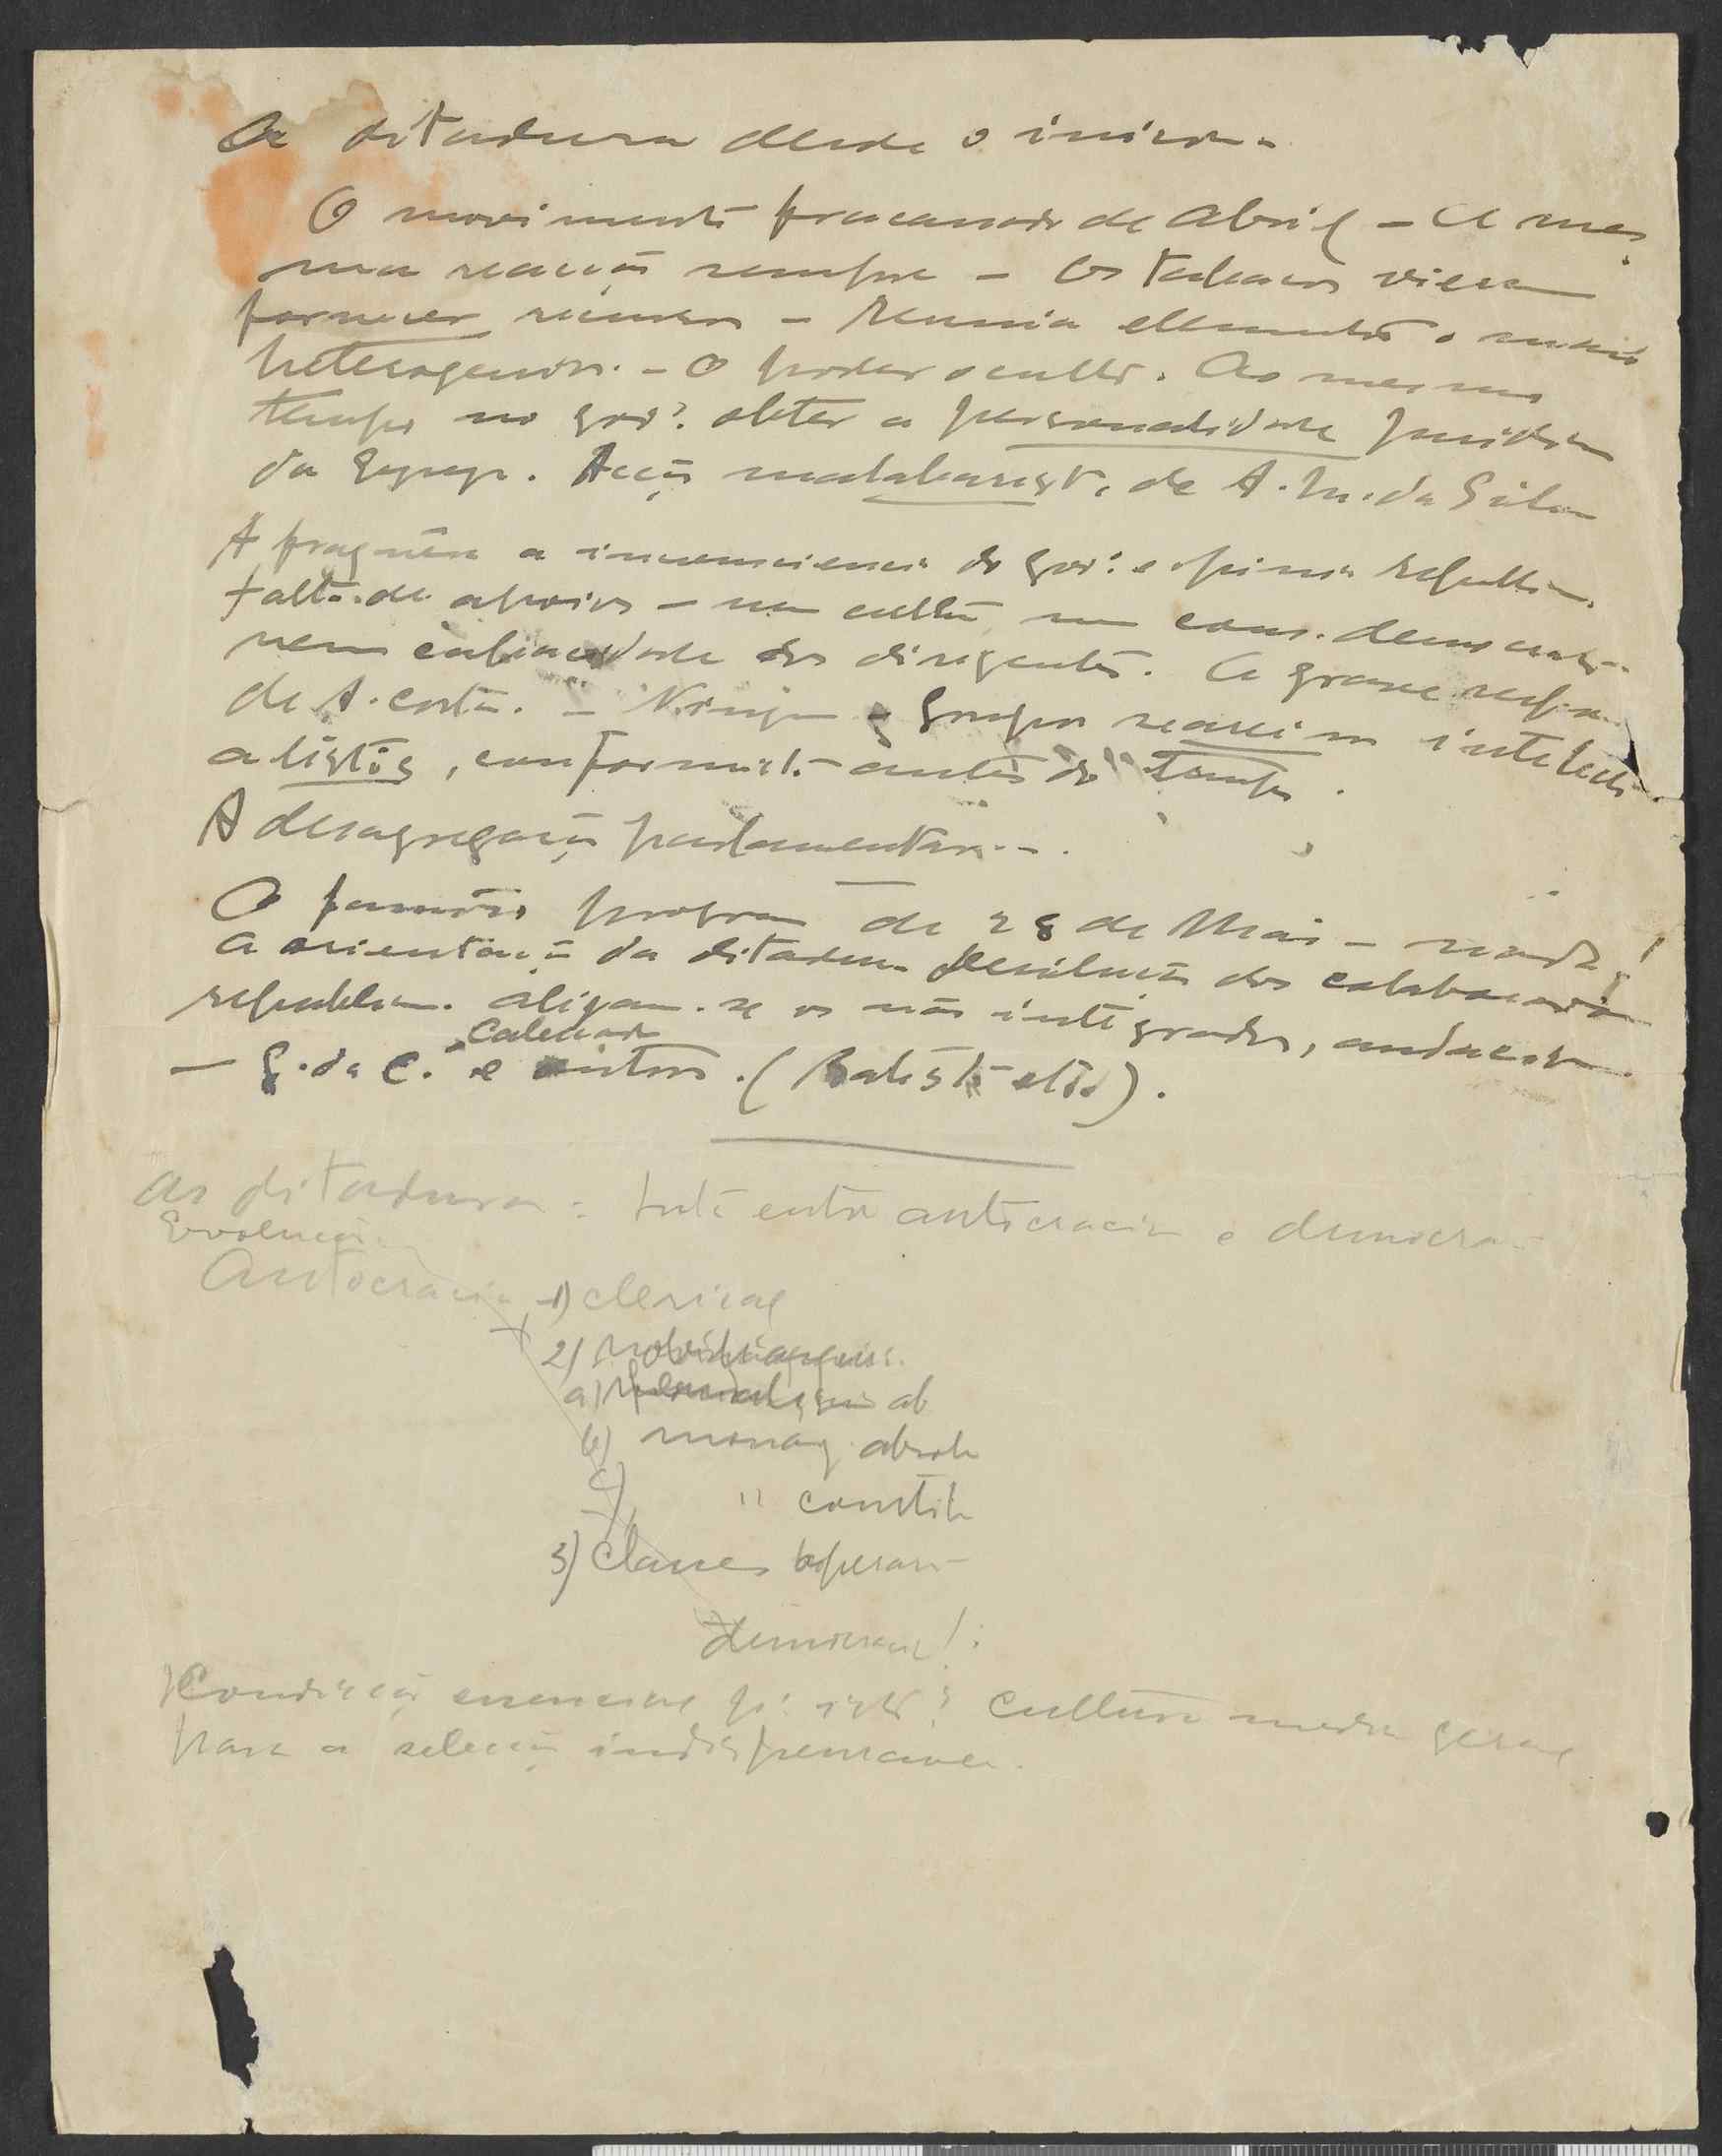 A ditadura desde o inicio.
O movimento fracassado de Abril – A mes
ma reacção sempre – Os tabacos vieram
fornecer recursos – Reunia elementos o mais
heterogenios. – O poder oculto. Ao mesmo
tempo no gov? obter a personalidade juridica
da Egreja. Acção malabarist. de A. M. da Silva
A fraqueza a inconsciencia do gov: e opinião republican.
falta de apoios – nem cultura nem cons. democratic
nem capacidade dos dirigentes. A grave resp.
de A. Costa. – Grupos intelectu
alistas, conformist. antes do tempo.
A desagregação parlamentar.
O famoso program de 28 de Maio –
a orientação da ditadura dos colaborad
republican. aligam-se os não integrados,
Calecad
– G. da C. e outros. (Batist etc).
As ditaduras: luta entre autocracia e democra
Evolução
Autocracia 1) clerical
2)
a) ab
b) monarq absolu
c) " constitu
3) Classes operari
democrac
Condição essencial p: isto? Cultura media geral
para a seleção indispensavel.